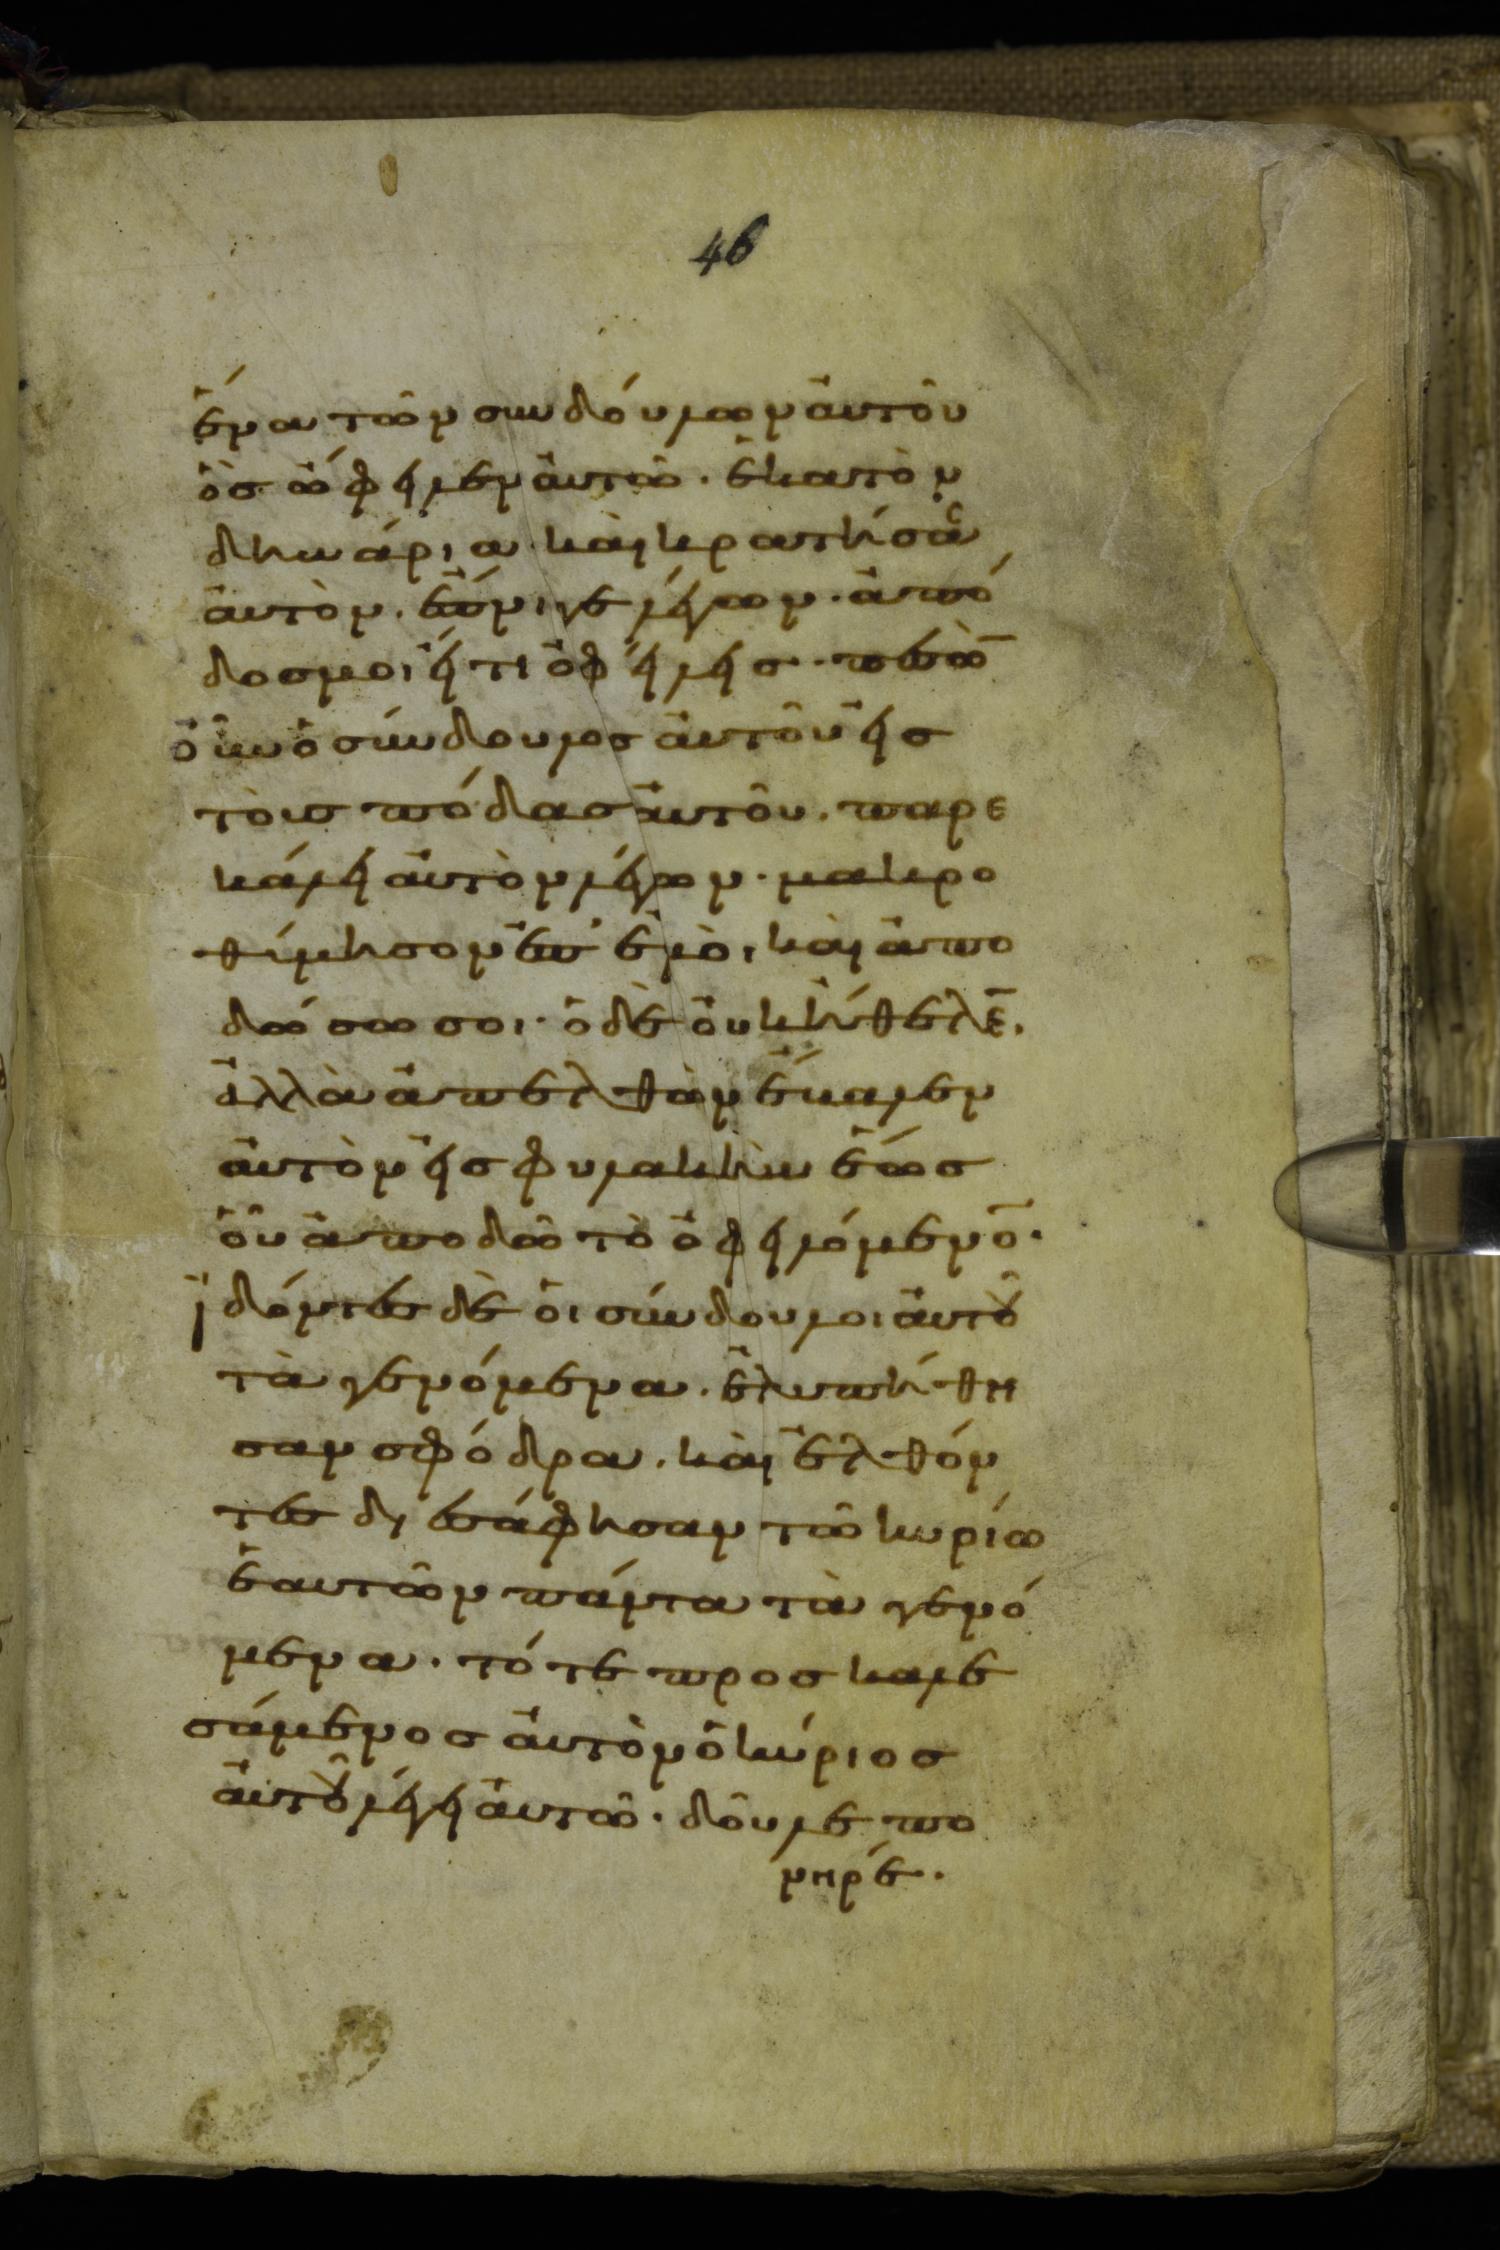 46
ἕνα τῶν συνδούλων ἀυτοῦ
ὃσ ὤφειλεν ἀυτῶ· ἑκατὸν
δηνάρια· καὶ κρατήσας
ἀυτὸν. ἔπνιγε λέγων· ἀπό
δοσ μοι εἴ τι ὀφείλεισ· πεσὼ̅
ὀῦν ὁ σύνδουλοσ ἀυτοῦ εἰσ
τοὺσ πόδασ ἀυτοῦ. παρε
κάλει ἀυτὸν λέγων· μακρο
θύμησον ἐπ' ἐμὸι, καὶ ἀπο
δώσω σοι· ὁ δὲ ὀυκ ἤθελε̅.
ἀλλὰ ἀπελθὼν ἔβαλεν
ἀυτὸν εἰσ φυλακὴν ἕωσ
ὁῦ ἀποδῶ τὸ ὀφειλόμενο̅·
ἰδόντεσ δὲ ὁι σύνδουλοι ἀυτοῦ
τὰ γενόμενα. ἐλυπήθη
σαν σφόδρα. καὶ ἐλθόν
τεσ διεσάφησαν τῶ κυρίω
ἑαυτῶν πάντα τὰ γενό
μενα. τότε προσκαλε
σάμενοσ ἀυτὸν ὁ κύριοσ
ἀυτοῦ λέγει ἀυτῶ· δοῦλε πο
νηρέ·